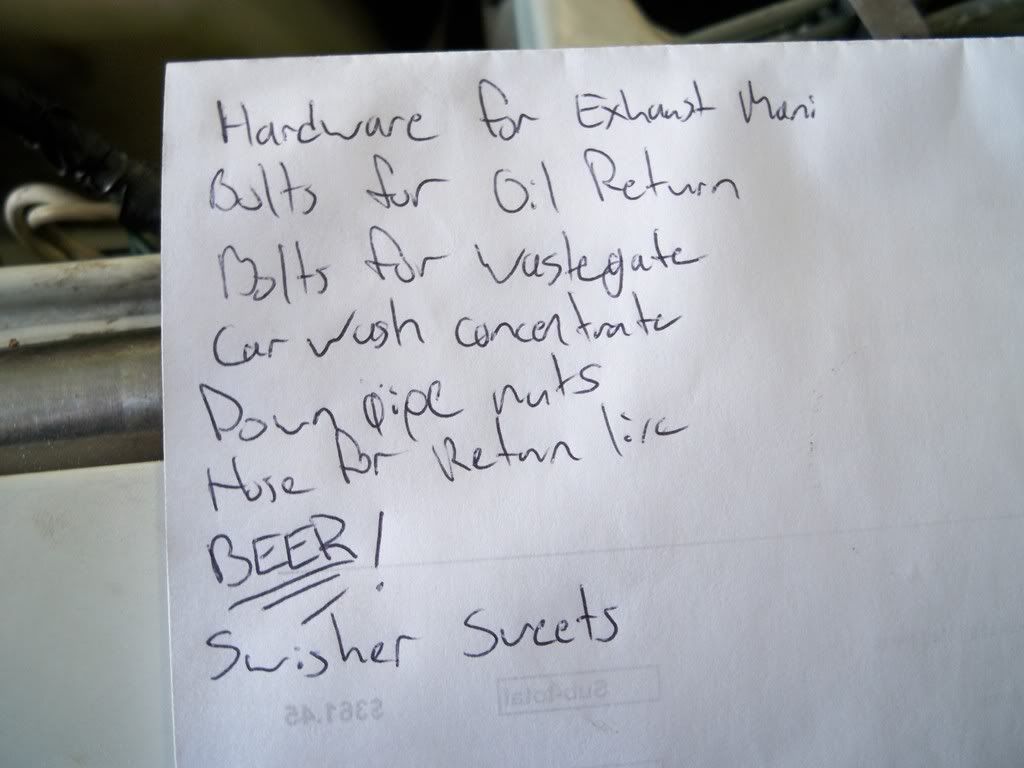 Hardware for Exhaust Mani
Bolts for Oil Return
Bolts for Wastegate
Car wash concentrate
Down pipe nuts
Hose for Return line
BEER!
Swisher Sweets
Sub-total
$361.45